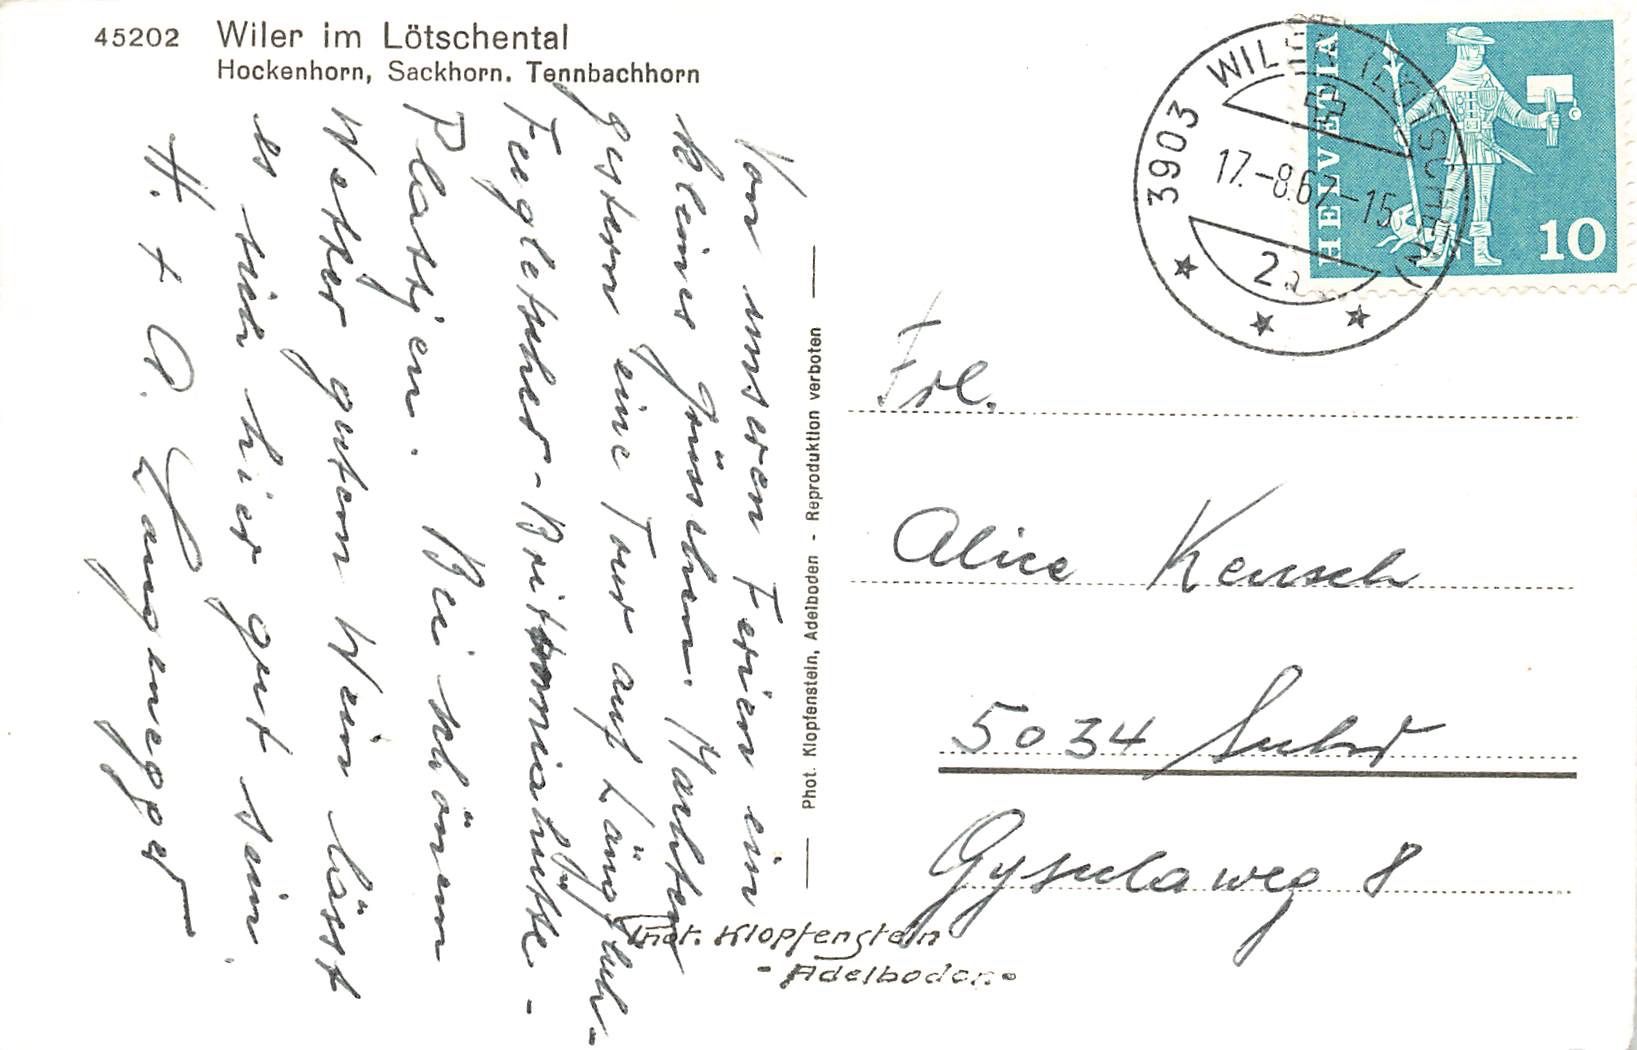 45202 Wiler im Lötschental
Hockenhorn, Sackhorn. Tennbachhorn
Von unseren Ferien ein
kleines Grüsschen. Machten
gestern eine Tour auf Längfluh-
Feegletscher-Britanniahütte-
Plattjen. Bei schönem
Wetter gutem Wein lässt
es sich hier gut sein.
H. + A. Langenegger
Phot. Klopfenstein, Adelboden - Reproduktion verboten
Phot. Klopfenstein
- Adelboden -
3903 WILER (LÖTSCHEN)
17.-8.67.-15
2a
HELVETIA
10
Frl.
Alice Kensch
5034 Suhr
Gysulaweg 8